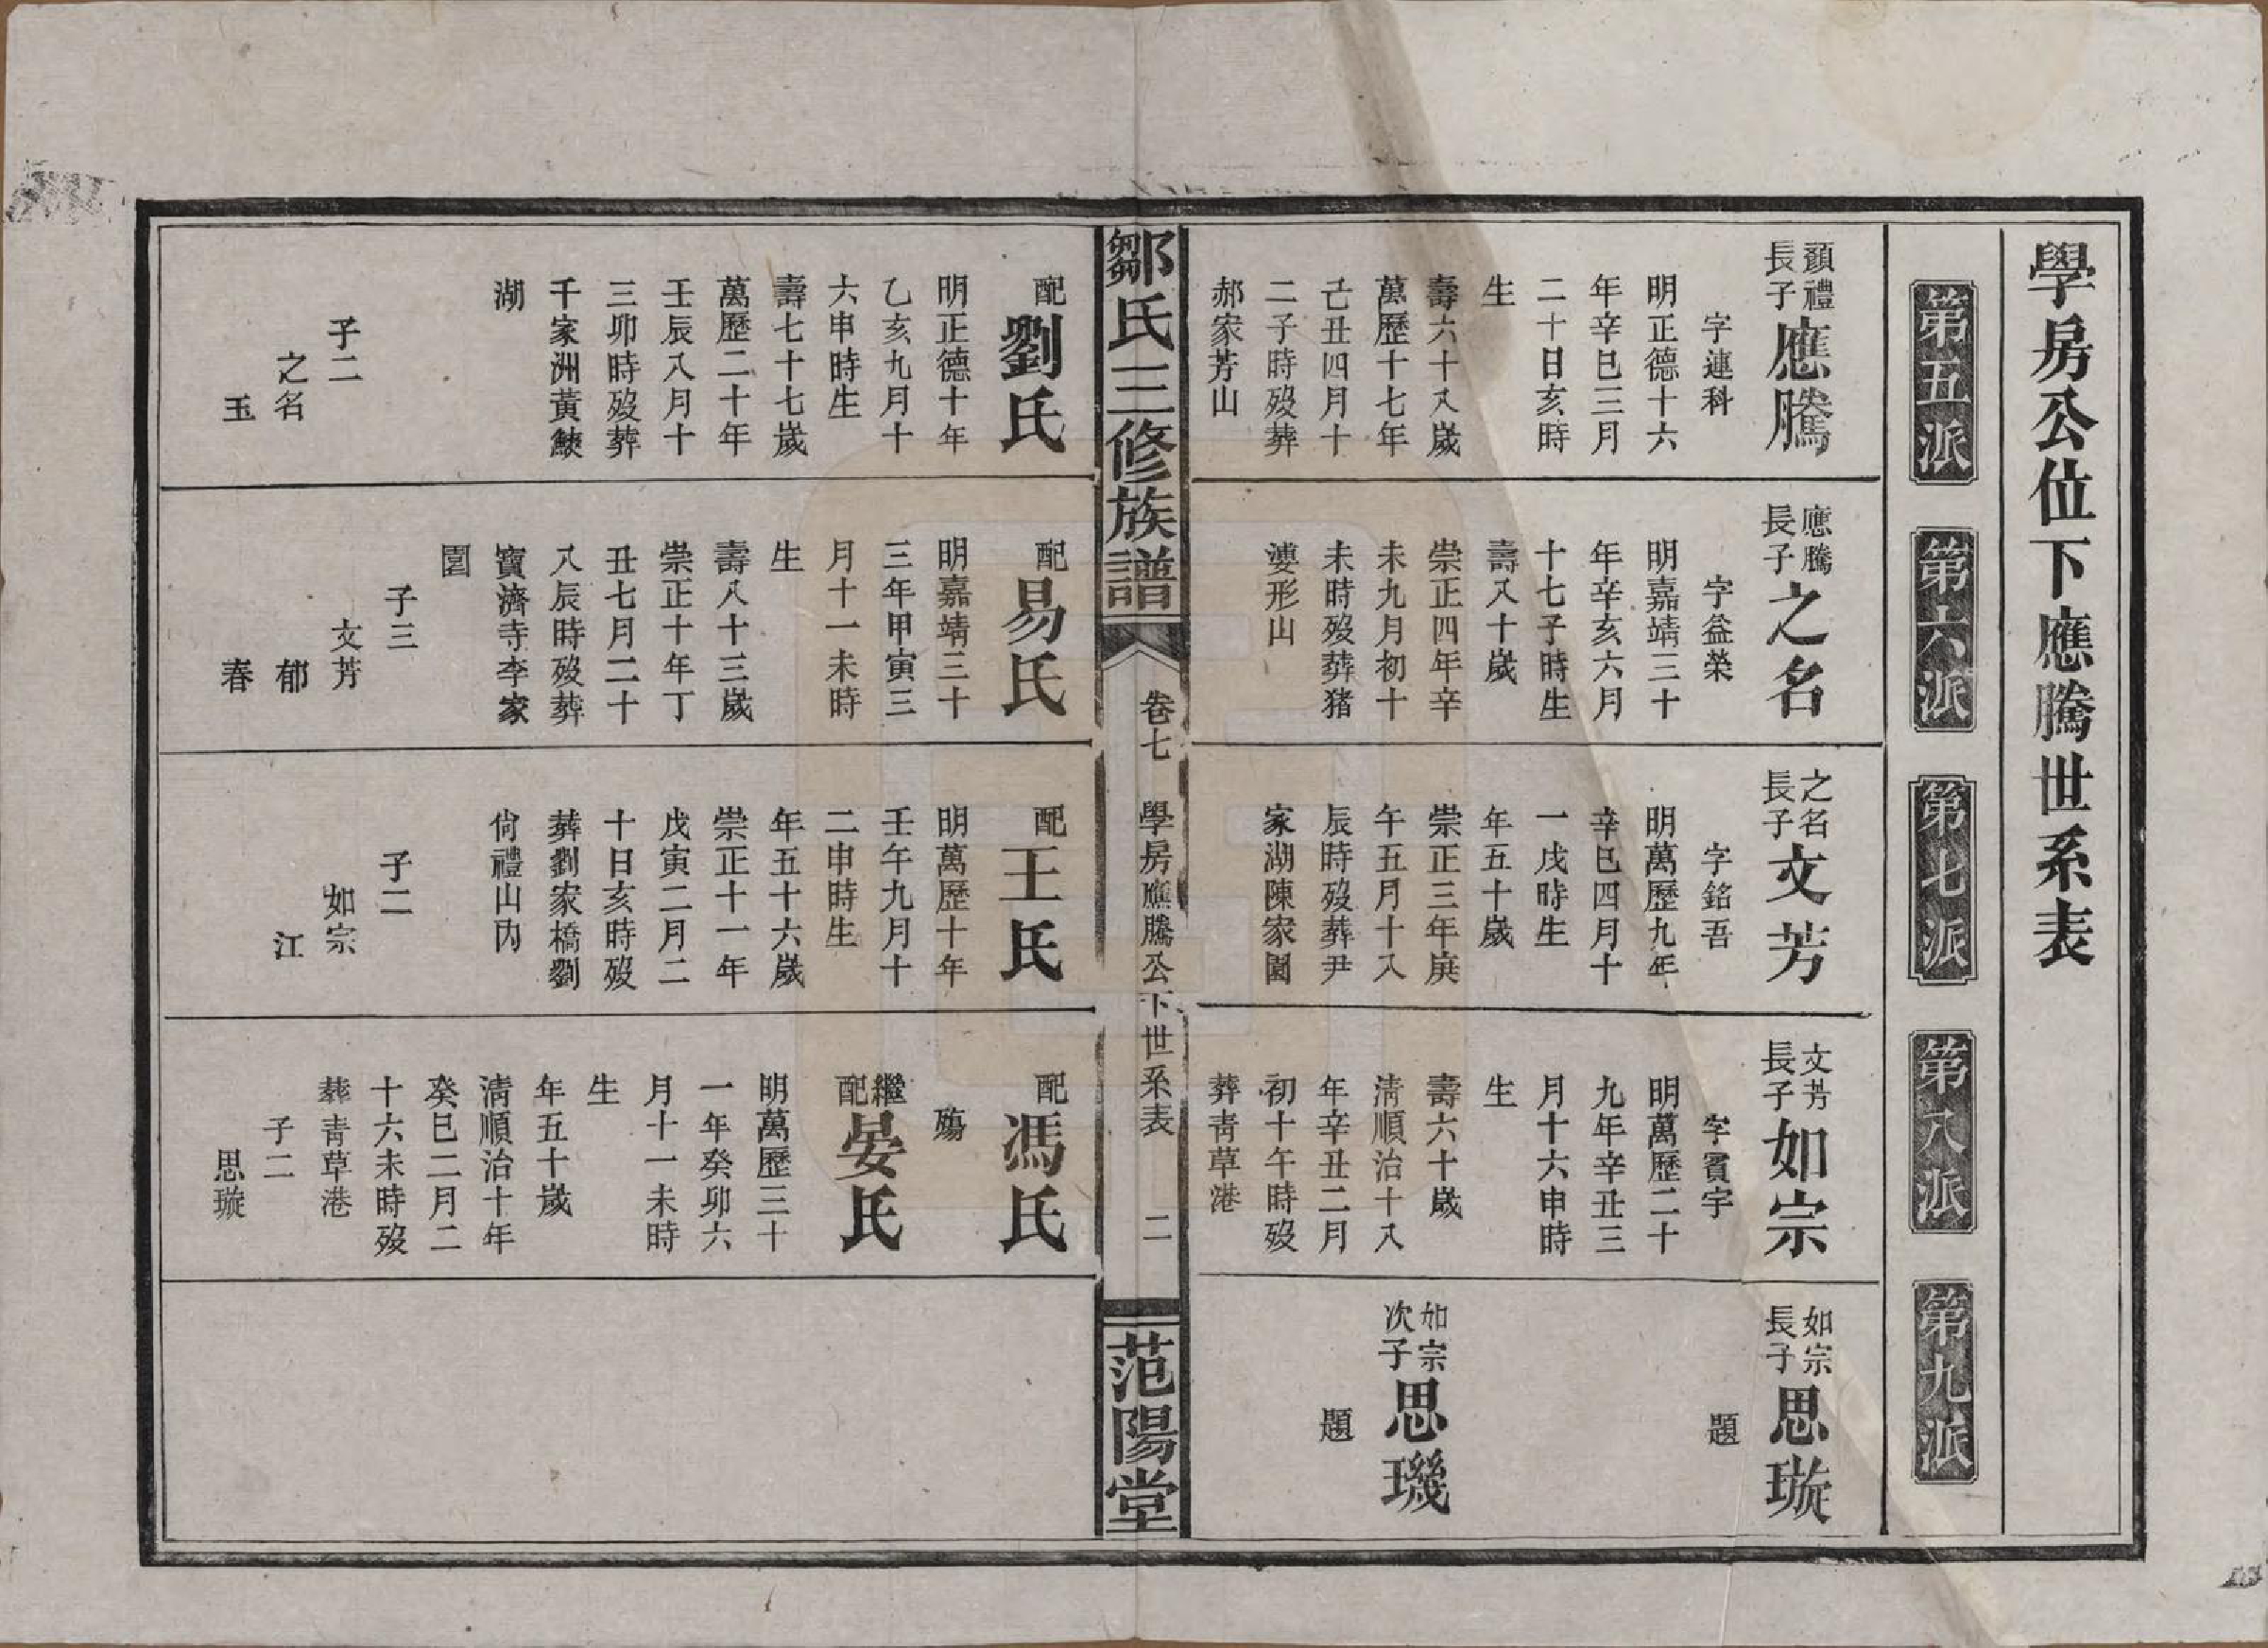 學房公位下應騰世系表
第五派
第六派
第七派
第八派
第九派
顏禮
長子
應騰
字連科
明正德十六
年辛巳三月
二十日亥時
生
壽六十八歲
萬歷十七年
己丑四月十
二子時歿葬
郝家芳山
應騰
長子
之名
字益榮
明嘉靖三十
年辛亥六月
十七子時生
壽八十歲
崇正四年辛
未九月初十
未時歿葬猪
婆形山
之名
長子
文芳
字銘吾
明萬歷九年
辛巳四月十
一戌時生
年五十歲
崇正三年庚
午五月十八
辰時歿葬尹
家湖陳家園
文芳
長子
如宗
字賓宇
明萬歷二十
九年辛丑三
月十六申時
生
壽六十歲
清順治十八
年辛丑二月
初十午時歿
葬青草港
如宗
長子
思璇
題
如宗
次子
思璣
題
鄒氏三修族譜
卷七
學房應騰公下世系表
二
范陽堂
配
劉氏
明正德十年
乙亥九月十
六申時生
壽七十七歲
萬歷二十年
壬辰八月十
三卯時歿葬
千家洲黃鰊
湖
子二
之名
玉
配
易氏
明嘉靖三十
三年甲寅三
月十一未時
生
壽八十三歲
崇正十年丁
丑七月二十
八辰時歿葬
寶濟寺李家
園
子三
文芳
郁
春
配
王氏
明萬歷十年
壬午九月十
二申時生
年五十六歲
崇正十一年
戊寅二月二
十日亥時歿
葬劉家橋劉
尙禮山內
子二
如宗
江
配
馮氏
殤
繼
配
晏氏
明萬歷三十
一年癸卯六
月十一未時
生
年五十歲
清順治十年
癸巳二月二
十六未時歿
葬靑草港
子二
思璇